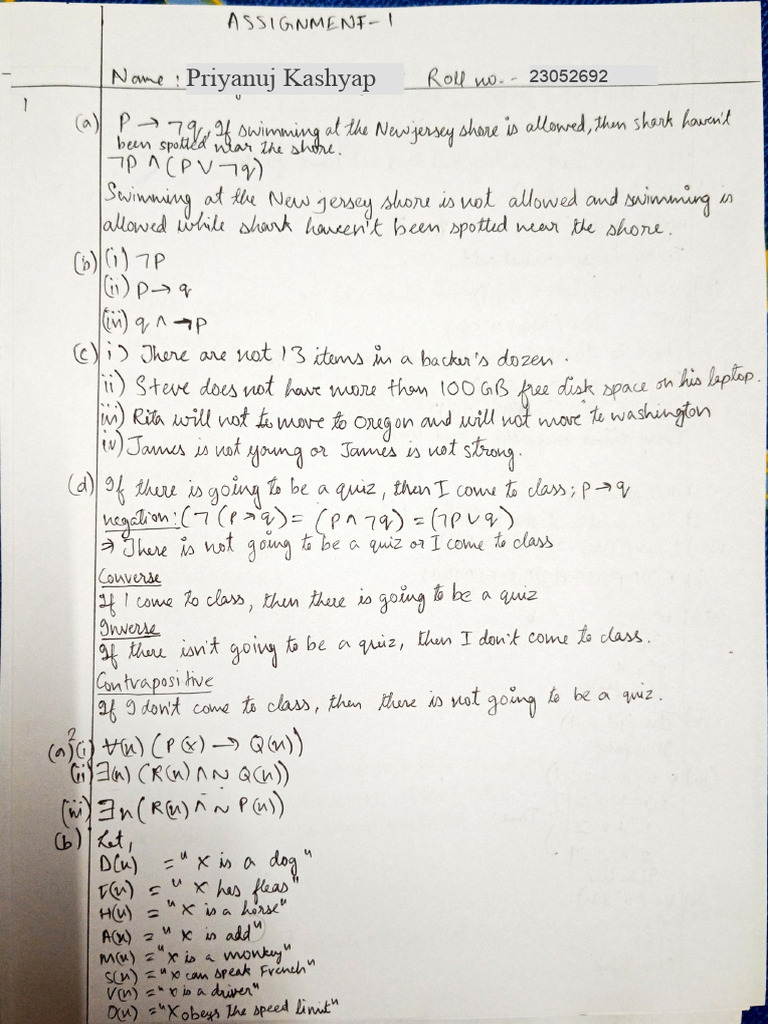 ASSIGNMENT-1
Name : Priyanuj Kashyap Roll no. - 23052692
1
(a) P → ¬q, If swimming at the New jersey shore is allowed, then shark haven't
been spotted near the shore.
¬P ∧ (P ∨ ¬q)
Swimming at the New jersey shore is not allowed and swimming is
allowed while shark haveen't been spotted near the shore.
(b) (i) ¬P
(ii) P → q
(iii) q ∧ ¬P
(c) i) There are not 13 items in a backer's dozen.
ii) Steve does not have more than 100 GB free disk space on his laptop.
iii) Rita will not to move to Oregon and will not move to washington
iv) James is not young or James is not strong.
(d) If there is going to be a quiz, then I come to class; P → q
negation: (¬(P → q) = (P ∧ ¬q) = (¬P ∨ q)
⇒ There is not going to be a quiz or I come to class
Converse
If I come to class, then there is going to be a quiz
Inverse
If there isn't going to be a quiz, then I don't come to class.
Contrapositive
If I don't come to class, then there is not going to be a quiz.
2
(a) (i) ∀(x) (P(x) → Q(x))
(ii) ∃(x) (R(x) ∧ ~ Q(x))
(iii) ∃x (R(x) ∧ ~ P(x))
(b) Let,
D(x) = "x is a dog"
F(x) = "x has fleas"
H(x) = "x is a horse"
A(x) = "x is add"
M(x) = "x is a monkey"
S(x) = "x can speak French"
V(x) = "x is a driver"
O(x) = "x obeys the speed limit"